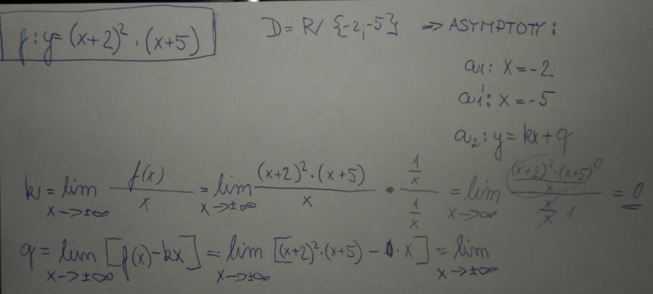 f: y = (x+2)² · (x+5)   D = R/ {-2,-5}   => ASYMPTOTY:
a₁: x = -2
a₁': x = -5
a₂: y = kx + q
k = lim x->±∞ f(x)/x = lim x->±∞ (x+2)²·(x+5)/x · (1/x)/(1/x) = lim x->∞ ((x+2)²·(x+5)/x 0)/(x/x 1) = 0
q = lim x->±∞ [f(x)-kx] = lim x->±∞ [(x+2)²·(x+5) - 0·x] = lim x->±∞